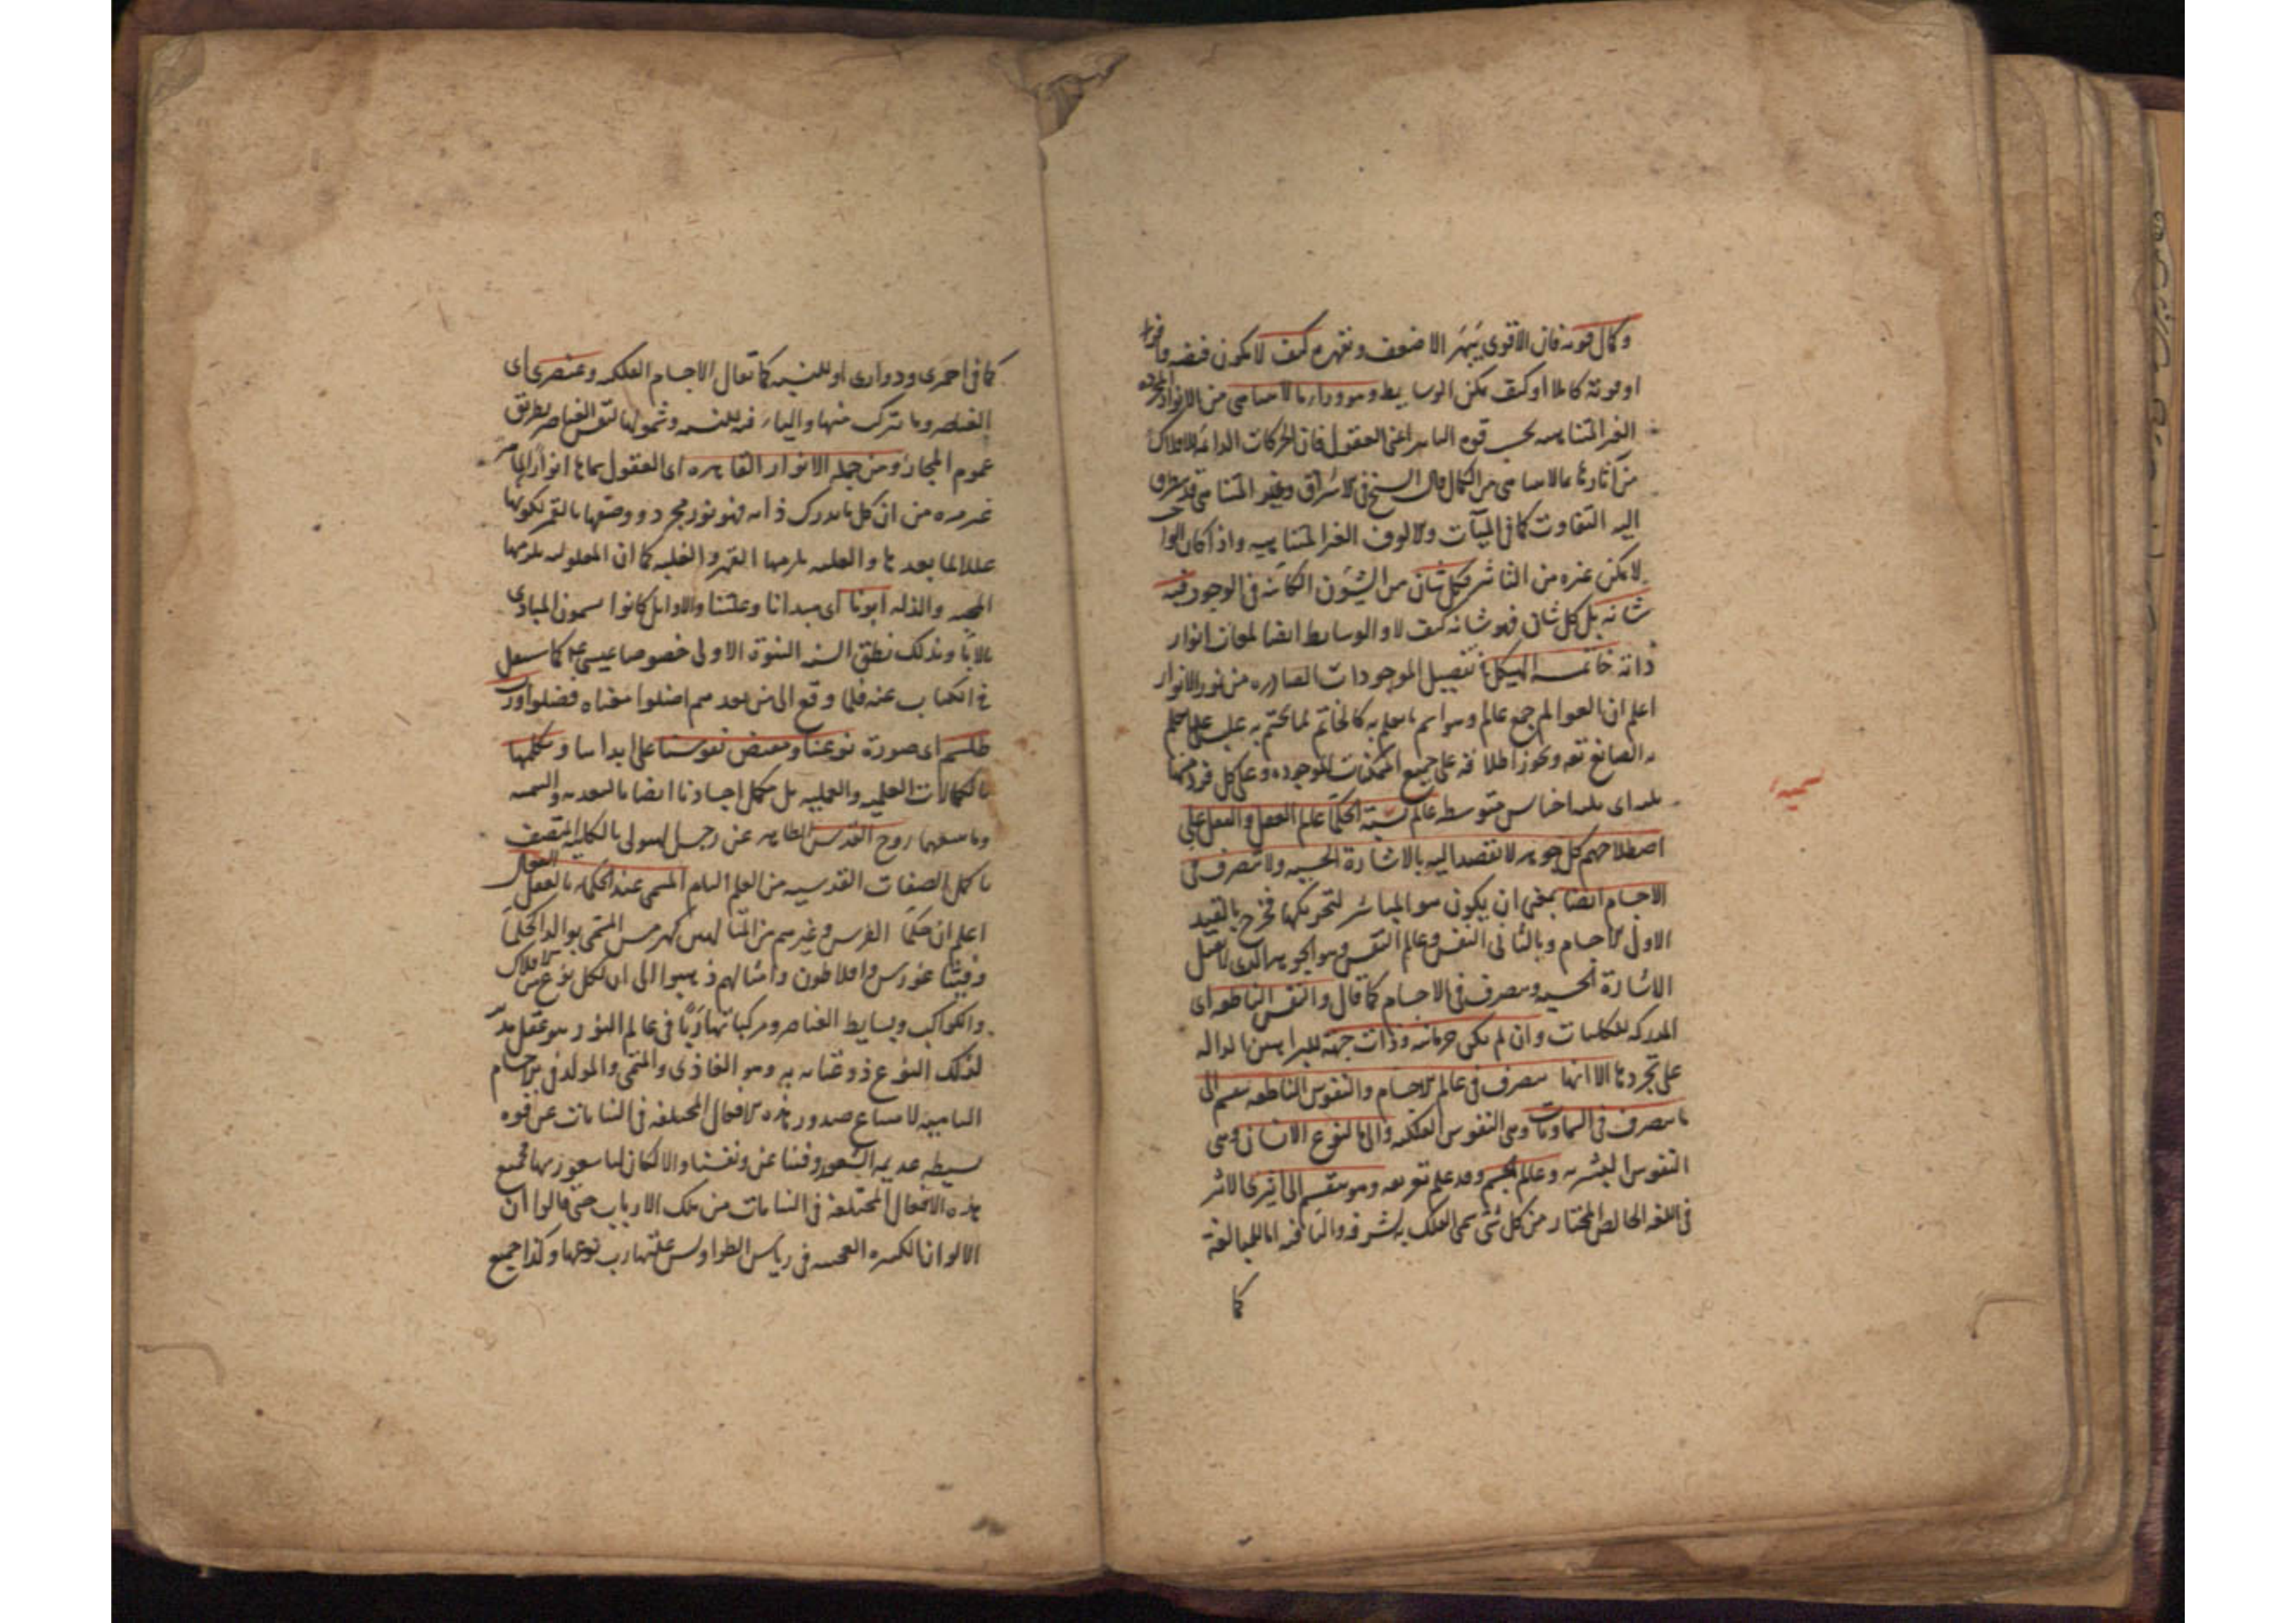 وكمال قوته فان الاقوى يبهر الاضعف ويقهره كيف لا يكون فيضه وافرا
او قوته كاملا او كيف يمكن الوسايط وهو وراء ما لا يتناهى من الانوار المجردة
الغير المتناهيه بحسب قوه التاثير اعنى العقول فان الحركات الدائمة للافلاك
من آثارها بما لا يتناهى من الكمال قال الشيخ فى الاشراق وغير المتناهى قد يتطرق
اليه التفاوت كما فى المئات والالوف الغير المتناهيه واذا كان الواجب
لا يمكن غيره من التاثير فكل شان من الشؤون الكائنة فى الوجود فيه
شانه بل كل شان فهو شانه كيف لا والوسايط ايضا لمعات انوار
ذاته خاتمة الهيكل تفصيل الموجودات الصادره من نور الانوار
اعلم ان العوالم جمع عالم وهو اسم ما يعلم به كالخاتم لما يختم به غلب على ما يعلم
به الصانع تعه ويجوز اطلاقه على جميع الممكنات الموجوده وعلى كل فرد منها
ثلثه اى ثلثه اجناس متوسطه عالم تسميه الحكما عالم العقل والعقل على
اصطلاحهم كل جوهر لا يقصد اليه بالاشارة الحسيه ولا يتصرف فى
الاجسام ايضا بمعنى ان يكون هو المباشر لتحريكها فخرج بالقيد
الاول الاجسام وبالثانى النفس وعالم النفس وهو الجوهر الذى لا يقبل
الاشارة الحسيه ويتصرف فى الاجسام كما قال والنفس الناطقه اى
المدركه للكليات وان لم يكن جرمانيه وذات جهة للبراهين الداله
على تجردها الا انها يتصرف فى عالم الاجسام والنفوس الناطقه ينقسم الى
ما يتصرف فى السماويات وهى النفوس الفلكيه والى ما لنوع الانسان وهى
النفوس البشريه وعالم الجسم وقد علم تعريفه وهو منقسم الى اثيرى الاثير
فى اللغه الخالص المختار من كل شئ سمى الفلك به لشرفه والياء فيه اما للمبالغة
كما
تسميه
كما فى احمرى ودوارى او للنسبه كما يقال الاجسام الفلكيه وعنصرى اى
العناصر وما يتركب منها والياء فيه للنسبه وشمولها لنفس العناصر بطريق
عموم المجاز ومن جمله الانوار القاهره اى العقول بما انها انوار لما مر
غير مره من ان كل ما يدرك ذاته فهو نور مجرد ووصفها بالقهر لكونها
عللا لما بعدها والعليه يلزمها القهر والغلبه كما ان المعلوليه يلزمها
المحبه والذله ابونا اى مبدانا وعلتنا والاوايل كانوا يسمون المبادى
بالاباء وبذلك نطق السنه النبوة الاولى خصوصا عيسى عم كما سينقل
فى الكتاب عنه فلما وقع الى من بعدهم اضلوا معناه فضلوا ورب
طلسم اى صورة نوعنا ومفيض نفوسنا على ابداننا ومكملها
بالكمالات العلميه والعمليه بل مكمل اجسادنا ايضا بالتغذيه والتنميه
وما يتبعهما روح القدس الطاهر عن رجس الهيولى بالكليه المتصف
باكمل الصفات القدسيه من العلم التام المسمى عند الحكماء بالعقل الفعال
اعلم ان حكما الفرس وغيرهم من المتالهين كهرمس المسمى بوالد الحكماء
وفيثاغورس وافلاطون وامثالهم ذهبوا الى ان لكل نوع من الافلاك
والكواكب وبسايط العناصر ومركباتها ربا فى عالم النور هو عقل مدبر
لذلك النوع ذو عنايه به وهو الغاذى والمنمى والمولد فى الاجسام
الناميه لامتناع صدور هذه الافعال المختلفه فى النباتات عن قوه
بسيطه عديمه الشعور وفينا عن ونفسنا والا لكان لنا شعور بها فجميع
هذه الافعال المختلفه فى النباتات من تلك الارباب حتى قالوا ان
الالوان الكثيره العجيبه فى رياش الطواويس علتها رب نوعها وكذا جميع